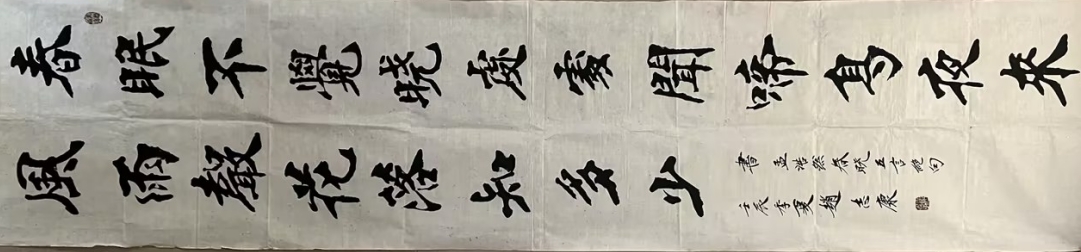 春眠不覺晓處處聞啼鳥夜來
風雨聲花落知多少
書孟浩然春晓五言絕句
壬辰季夏趙志康